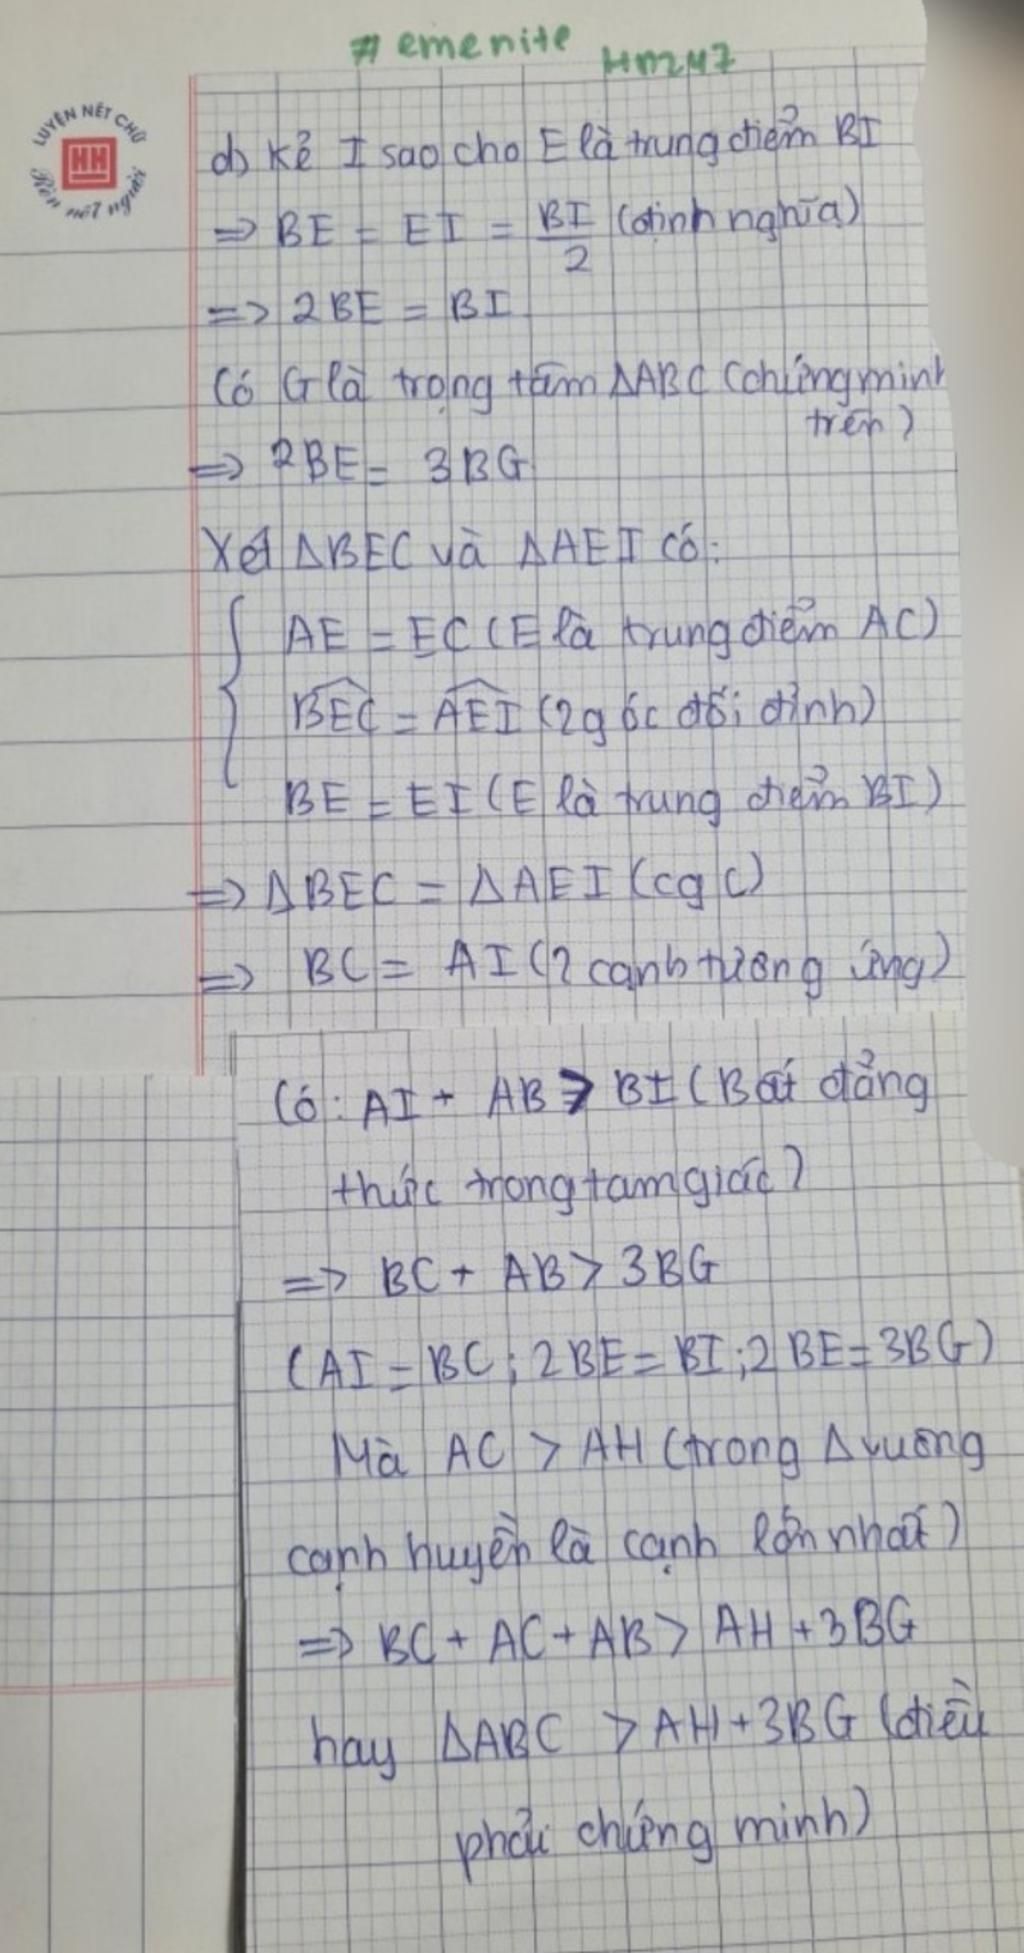 # emenite HM247
LUYỆN NÉT CHỮ
HH
Rèn nết người
d) Kẻ I sao cho E là trung điểm BI
=> BE = EI = BI/2 (định nghĩa)
=> 2BE = BI
Có G là trọng tâm ΔABC (chứng minh
trên)
=> 2BE = 3BG
Xét ΔBEC và ΔAEI có:
{ AE = EC (E là trung điểm AC)
BEC^ = AEI^ (2 góc đối đỉnh)
BE = EI (E là trung điểm BI)
=> ΔBEC = ΔAEI (cgc)
=> BC = AI (2 cạnh tương ứng)
Có: AI + AB > BI (Bất đẳng
thức trong tam giác)
=> BC + AB > 3BG
(AI = BC; 2BE = BI; 2BE = 3BG)
Mà AC > AH (trong Δ vuông
cạnh huyền là cạnh lớn nhất)
=> BC + AC + AB > AH + 3BG
hay ΔABC > AH + 3BG (điều
phải chứng minh)